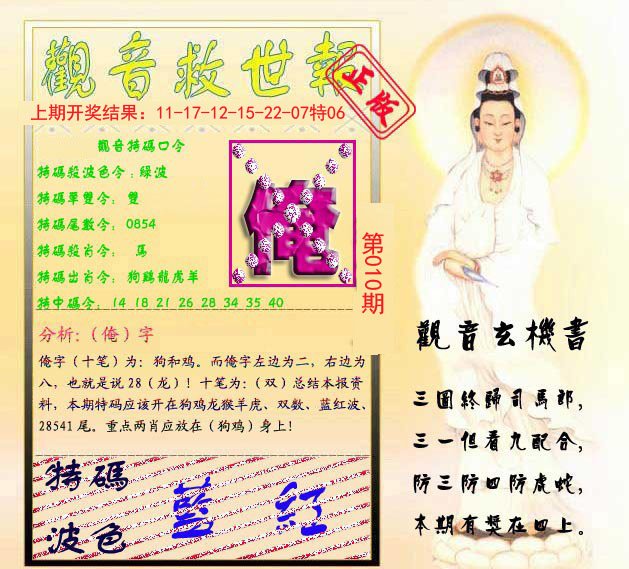 觀音救世報
正版
上期开奖结果：11-17-12-15-22-07特06
觀音特碼口令
特碼殺波色令：绿波
特碼單雙令： 雙
特碼尾數令： 0854
特碼殺肖令： 馬
特碼出肖令： 狗鷄龍虎羊
特中碼令： 14 18 21 26 28 34 35 40
俺
第010期
分析：（俺）字
俺字（十笔）为：狗和鸡。而俺字左边为二，右边为
八，也就是说28（龙）！十笔为：（双）总结本报资
料，本期特码应该开在狗鸡龙猴羊虎、双数、蓝红波、
28541尾。重点两肖应放在（狗鸡）身上！
特碼
波色
藍 紅
觀音玄機書
三國終歸司馬郎，
三一但看九配合，
防三防四防虎蛇，
本期有獎在四上。